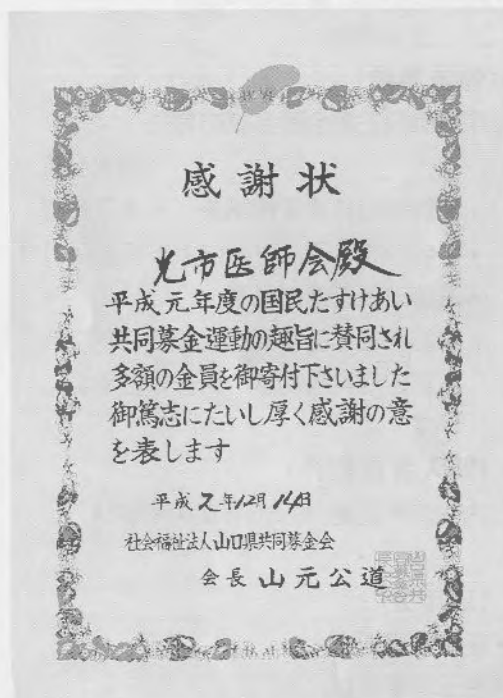 感謝状
光市医師会殿
平成元年度の国民たすけあい
共同募金運動の趣旨に賛同され
多額の金員を御寄付下さいました
御篤志にたいし厚く感謝の意
を表します
平成2年12月14日
社会福祉法人山口県共同募金会
会長 山元公道